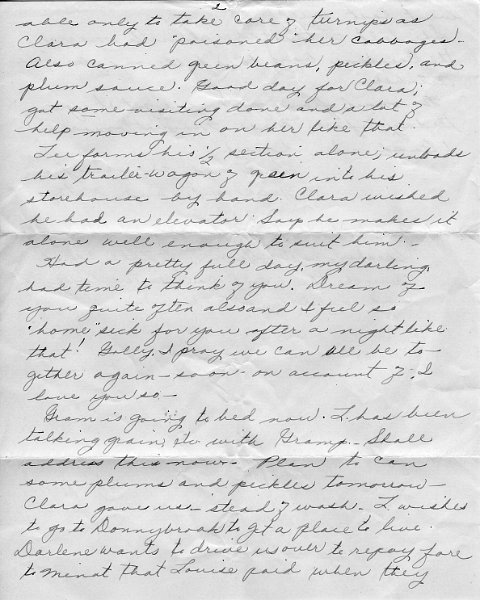 2
able only to take care of turnips as
Clara had "poisoned" her cabbages -
Also canned green beans, pickles, and
plum sauce. Good day for Clara;
got some visiting done and a lot of
help - moving in on her like that.
Lee farms his 1/2 section alone; unloads
his trailer-wagon of green into his
storehouse by hand. Clara wished
he had an elevator. Says he makes it
alone well enough to suit him. -
Had a pretty full day, my darling,
had time to think of you. Dream of
you quite often also and I feel so
"home" sick for you after a night like
that! Golly, I pray we can all be to-
gether again - soon - on account of - I
love you so -
Gram is going to bed now. L. has been
talking grain, etc with Gramp. - Shall
address this now - Plan to can
some plums and pickles tomorrow -
Clara gave us - stead of wash. L. wishes
to go to Donnybrook to gt a place to live.
Darlene wants to drive us over to repay fare
to Minot that Louise paid when they